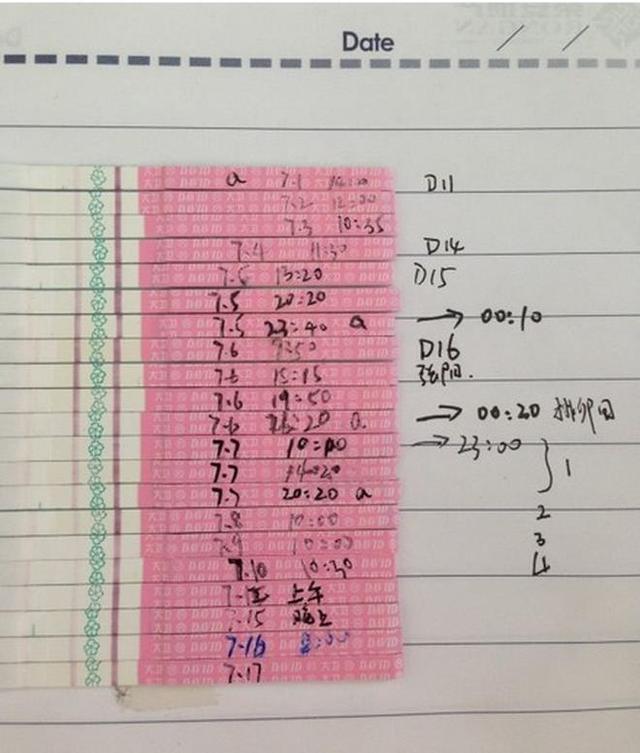 Date / /
a 7.1 14:00 D11
7.2 12:00
7.3 10:35
7.4 11:30 D14
7.5 13:20 D15
7.5 20:20
7.5 23:40 a → 00:10
7.6 7:50 D16
7.6 15:15 强阳.
7.6 19:50
7.6 20 a. → 00:20 排卵日
7.7 10:00 → 23:00
7.7 14:20 1
7.7 20:20 a
7.8 10:00 2
7.9 10:00 3
7.10 10:30 4
上午
7.15 晚上
7.16 :00
7.17